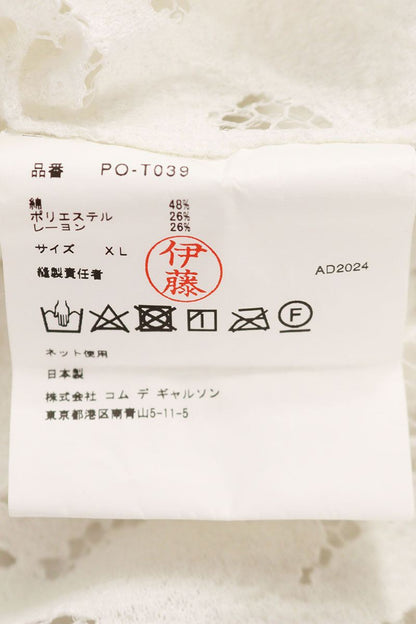 品番 PO-T039
綿 48%
ポリエステル 26%
レーヨン 26%
サイズ XL
縫製責任者
伊藤
AD2024
F
ネット使用
日本製
株式会社 コム デ ギャルソン
東京都港区南青山5-11-5